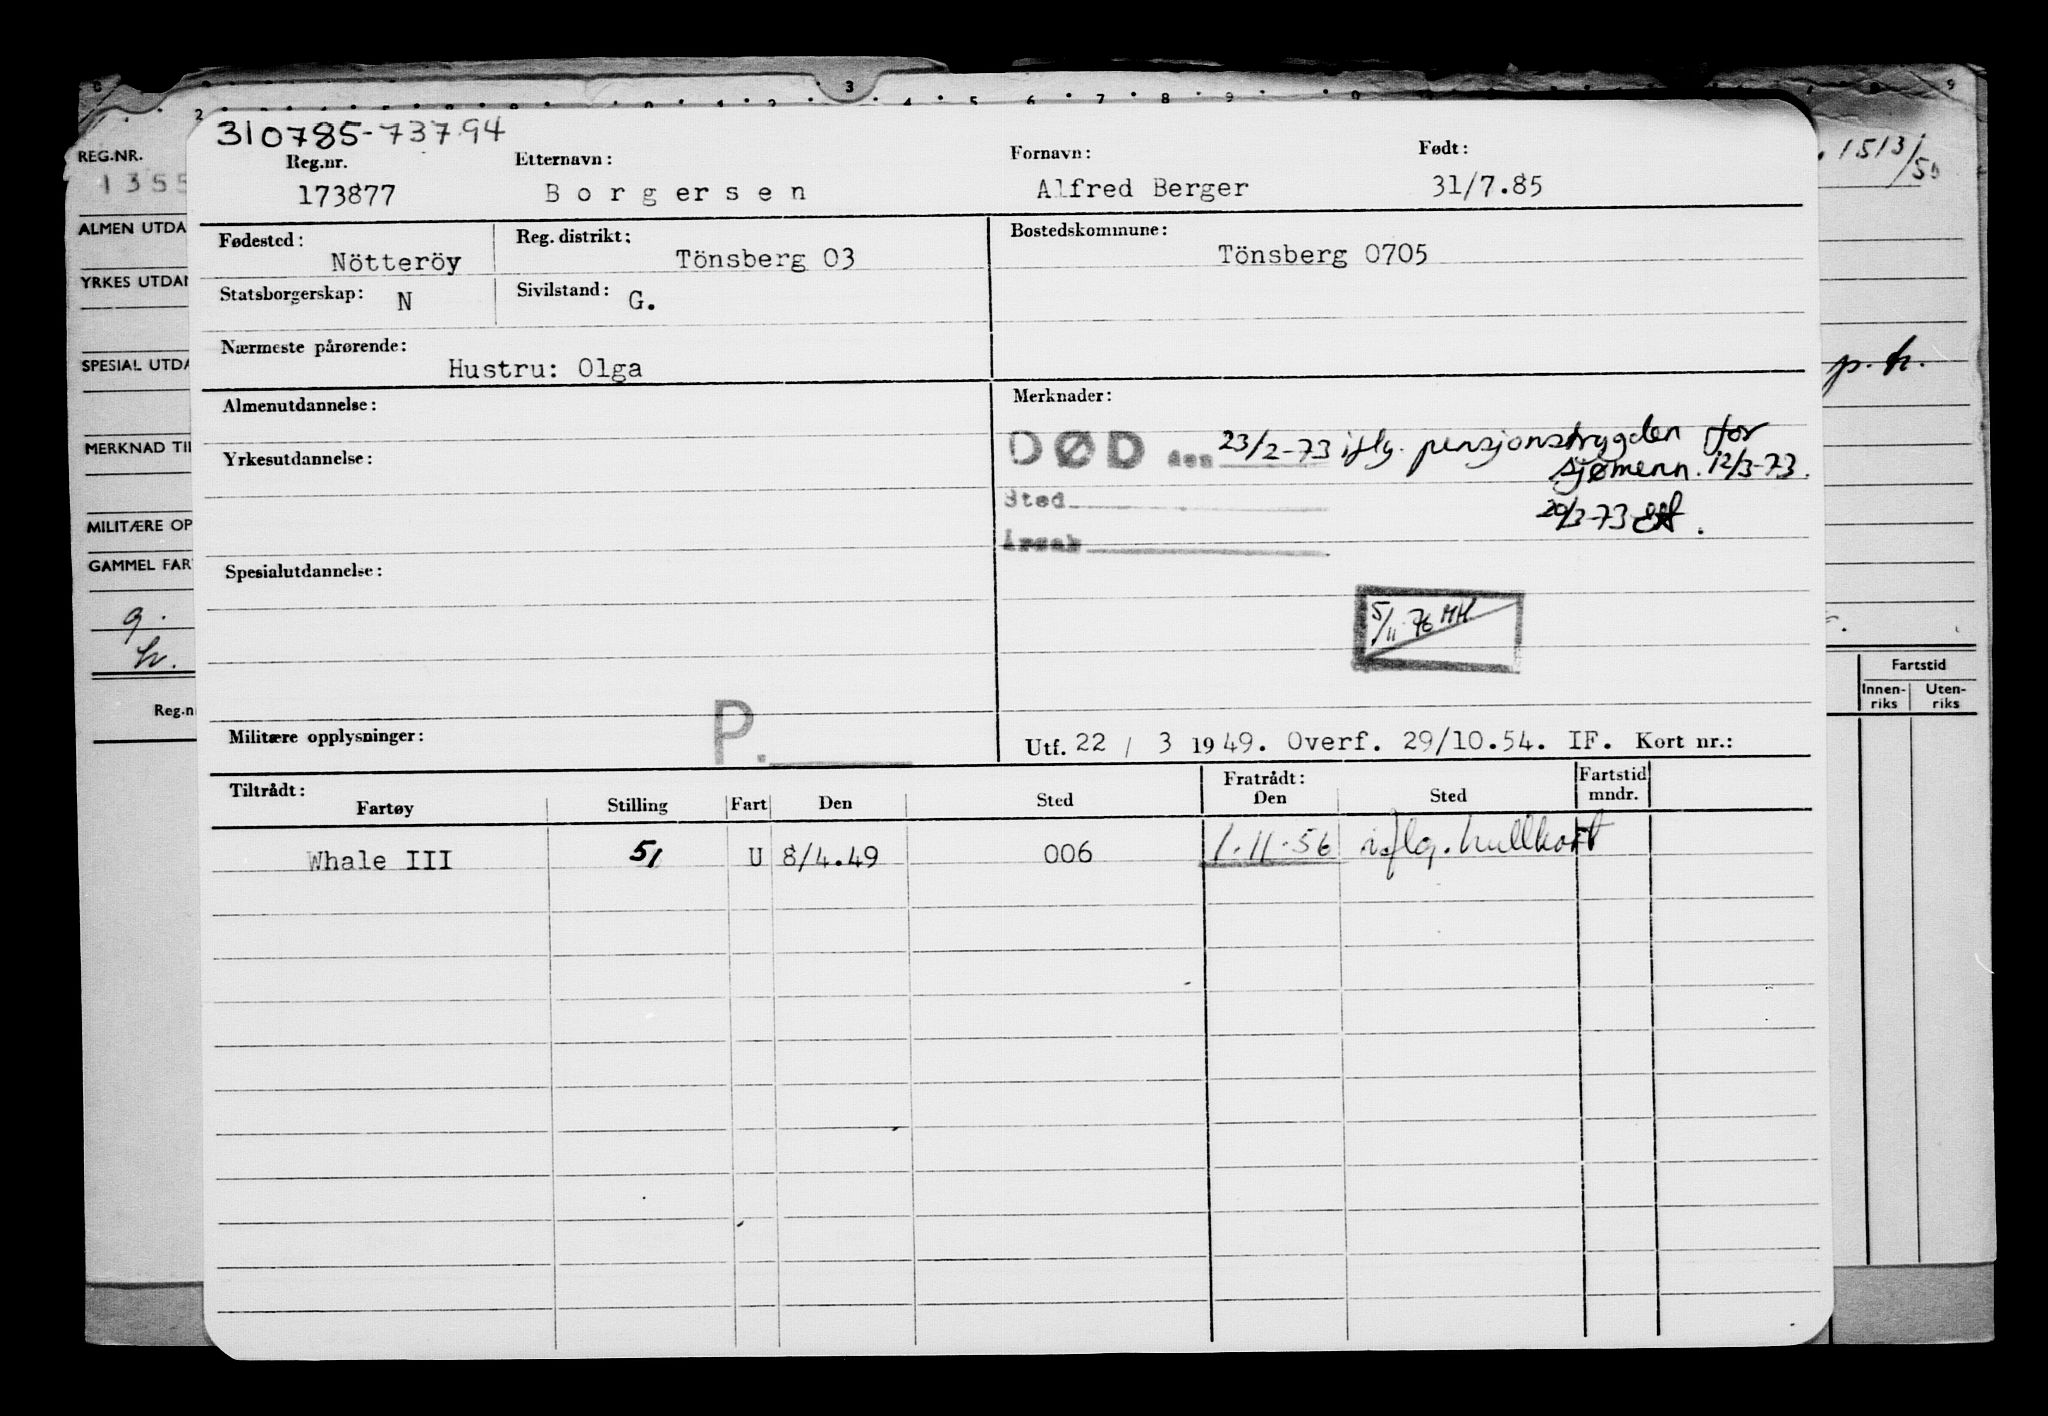 310785-73794
Reg.nr. Etternavn: Fornavn: Født:
173877 Borgersen Alfred Berger 31/7.85
Fødested: Nötteröy Reg. distrikt: Tönsberg 03 Bostedskommune: Tönsberg 0705
Statsborgerskap: N Sivilstand: G.
Nærmeste pårørende:
Hustru: Olga
Almenutdannelse: Merknader:
DØD den 23/2-73 iflg. pensjonstrygden for
sjømenn. 12/3-73.
Yrkesutdannelse:
Sted
20/3-73
Årsak
Spesialutdannelse:
5/11-76 MH
Militære opplysninger: P. Utf. 22 / 3 1949. Overf. 29/10.54. IF. Kort nr.:
Tiltrådt: Fratrådt: Fartstid
Fartøy Stilling Fart Den Sted Den Sted mndr.
Whale III 51 U 8/4.49 006 1.11.56 iflg. hullkort
REG.NR.
1355
ALMEN UTDA
YRKES UTDAN
SPESIAL UTDA
MERKNAD TIL
MILITÆRE OP
GAMMEL FAR
g.
h.
Reg.n
1513/50
p.h.
Fartstid
Innen-riks Uten-riks